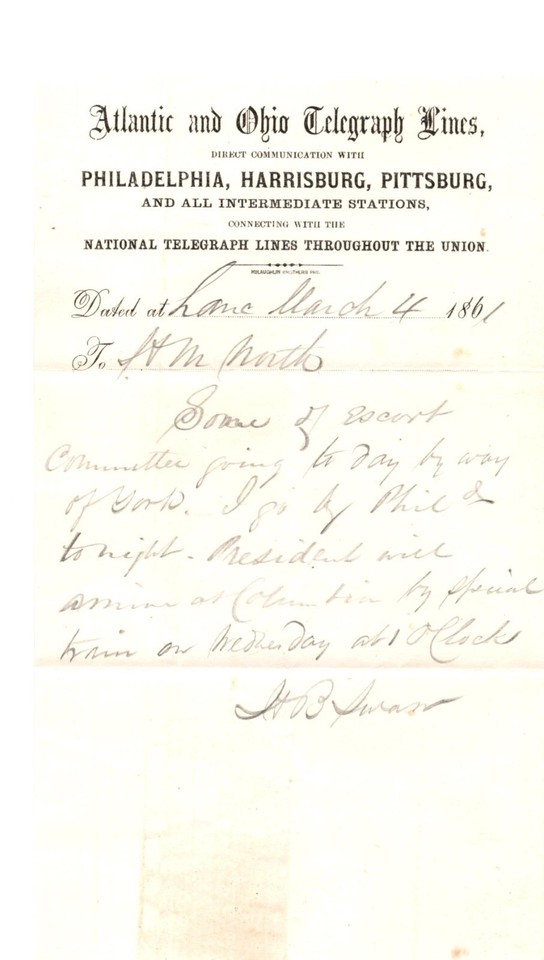 Atlantic and Ohio Telegraph Lines,
DIRECT COMMUNICATION WITH
PHILADELPHIA, HARRISBURG, PITTSBURG,
AND ALL INTERMEDIATE STATIONS,
CONNECTING WITH THE
NATIONAL TELEGRAPH LINES THROUGHOUT THE UNION.
Dated at Lanc March 4 1861
To H M North
Some of Escort
Committee going to day by way
of York. I go by Phila
tonight. President will
arrive at Columbia by special
train on Wednesday at 1 O'Clock
H B Swarr